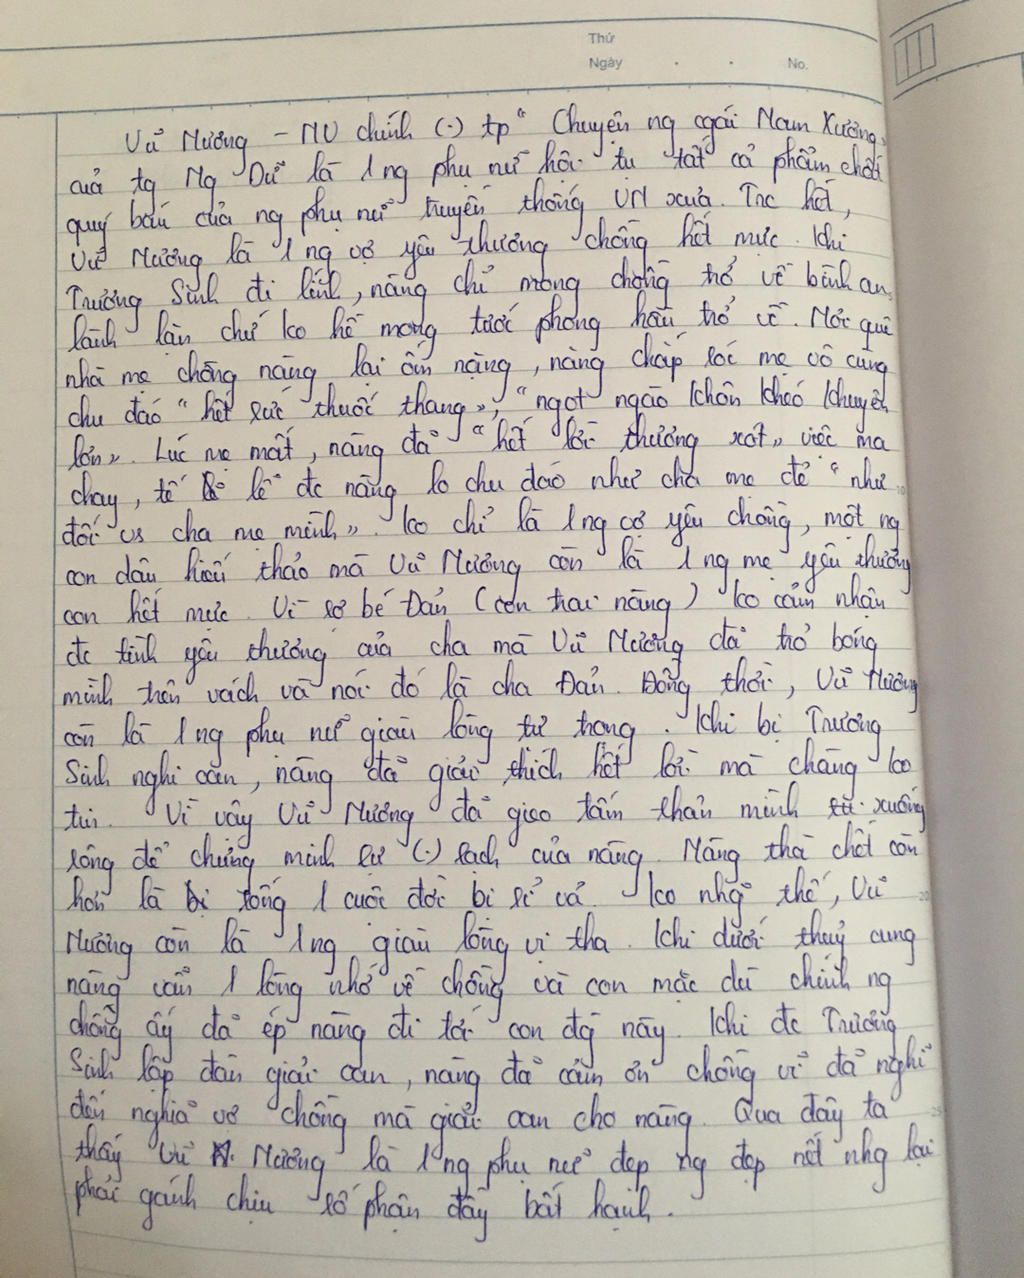 Thứ
Ngày . . No.
Vũ Nương - NV chính (.) tp "Chuyện ng cgái Nam Xương"
của tg Ng Dữ là 1 ng phụ nữ hội tụ tất cả phẩm chất
quý báu của ng phụ nữ truyền thống VN xưa. Trc hết,
Vũ Nương là 1 ng vợ yêu thương chồng hết mực. Khi
Trương Sinh đi lính, nàng chỉ mong chồng trở về bình an,
lành lặn chứ ko hề mong tước phong hầu trở về. Nơi quê
nhà mẹ chồng nàng lại ốm nặng, nàng chăm sóc mẹ vô cùng
chu đáo "hết sức thuốc thang", "ngọt ngào khôn khéo khuyên
lơn". Lúc mẹ mất, nàng đã "hết lời thương xót" việc ma
chay, tế lễ đc nàng lo chu đáo như cha mẹ đẻ "như
đối vs cha mẹ mình". Ko chỉ là 1 ng vợ yêu chồng, một ng
con dâu hiếu thảo mà Vũ Nương còn là 1 ng mẹ yêu thương
con hết mực. Vì sợ bé Đản (con trai nàng) ko cảm nhận
đc tình yêu thương của cha mà Vũ Nương đã trỏ bóng
mình trên vách và nói đó là cha Đản. Đồng thời, Vũ Nương
còn là 1 ng phụ nữ giàu lòng tự trọng. Khi bị Trương
Sinh nghi oan, nàng đã giải thích hết lời mà chàng ko
tin. Vì vậy Vũ Nương đã gieo tấm thân mình xuống
sông để chứng minh sự (.) sạch của nàng. Nàng thà chết còn
hơn là bị sống 1 cuộc đời bị sỉ vả. Ko nhg thế, Vũ
Nương còn là 1 ng giàu lòng vị tha. Khi dưới thuỷ cung
nàng vẫn 1 lòng nhớ về chồng và con mặc dù chính ng
chồng ấy đã ép nàng đi tới con đg này. Khi đc Trương
Sinh lập đàn giải oan, nàng đã cảm ơn chồng vì đã nghĩ
đến nghĩa vợ chồng mà giải oan cho nàng. Qua đây ta
thấy Vũ Nương là 1 ng phụ nữ đẹp ng đẹp nết nhg lại
phải gánh chịu số phận đầy bất hạnh.